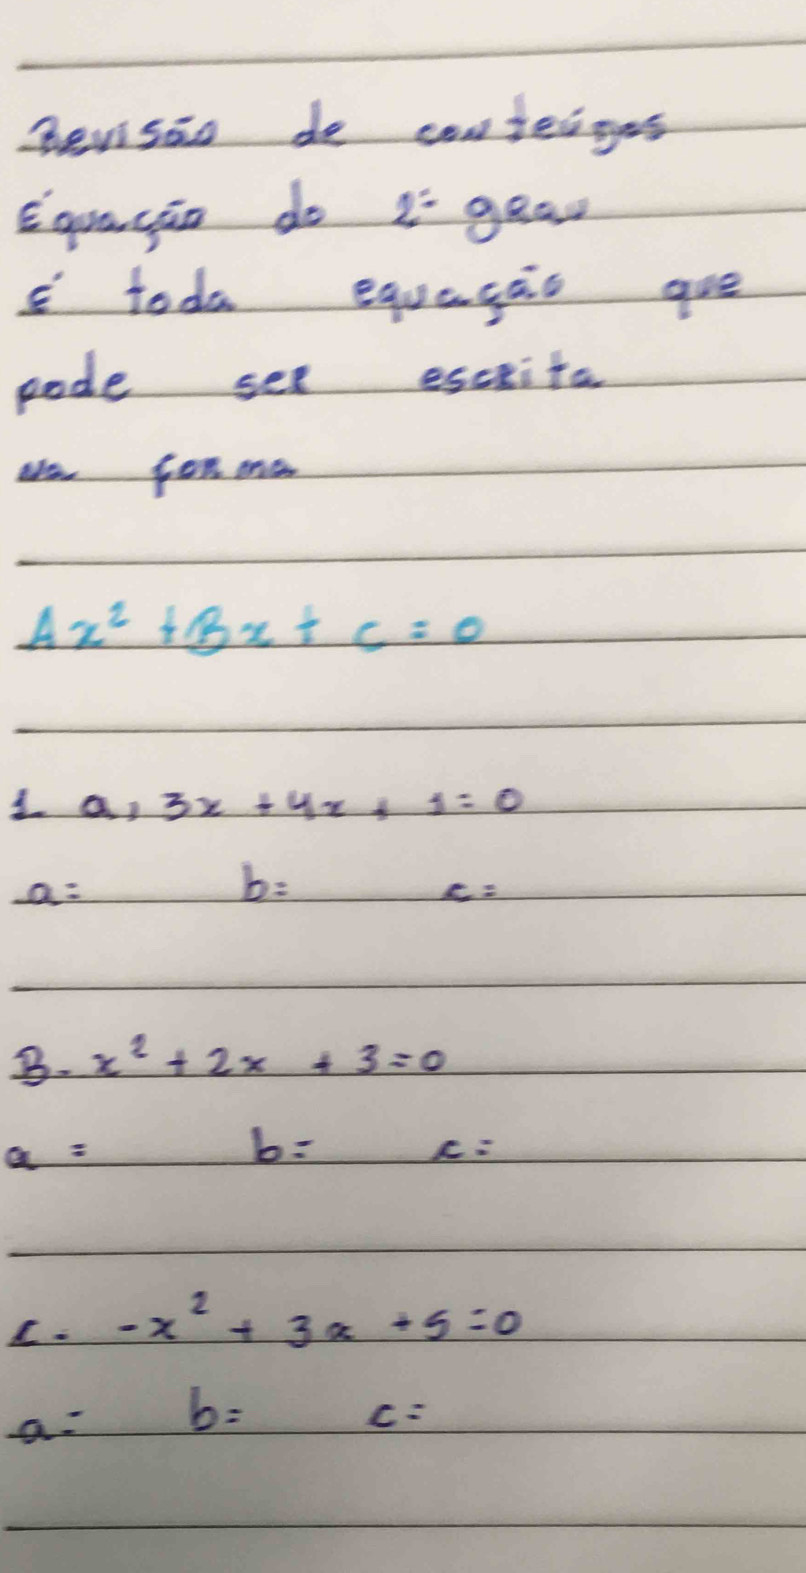 Revisão de conteúgos
Equação do 2º grau
É toda equação que
pode ser escrita
na forma
Ax² + Bx + c = 0
1. a, 3x + 4x + 1 = 0
a= b= c=
B. x² + 2x + 3 = 0
a = b= c=
C. -x² + 3x + 5 = 0
a= b= c=